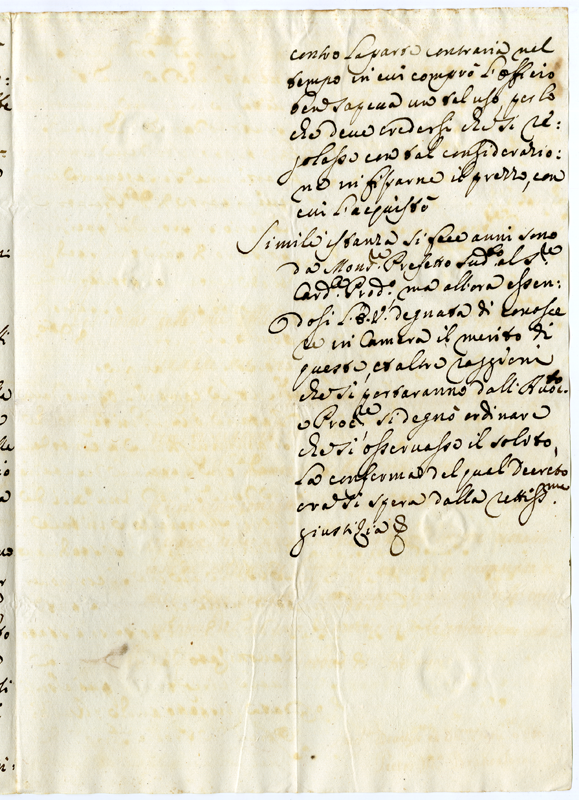 contro la parte contraria nel
tempo in cui comprò l'offitio
ben sapeva un tal uso, per lo
che deve credersi che si re:
golasse con tal considerazio:
ne in fissarne il prezzo, con
cui l'acquistò
Simile istanza si fece anni sono
da Mons.r Prefetto sud.to al S.r
Card.le Prod.o, ma allora essen:
dosi degnata di conosce
re in Camera il merito di
queste, et altre raggioni
che si portaranno dall'
e si degnò ordinare
che si osservasse il solito,
la conferma del qual Decreto
ora si spera dalla rettiss.ma
giustizia